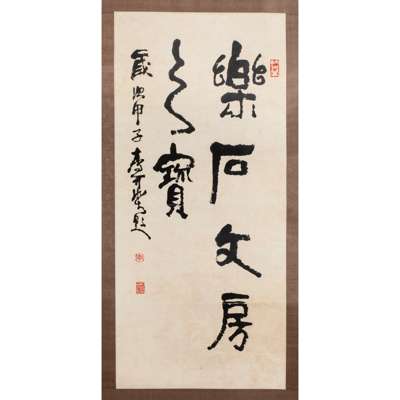 樂石文房
之寶
歲次甲子 題